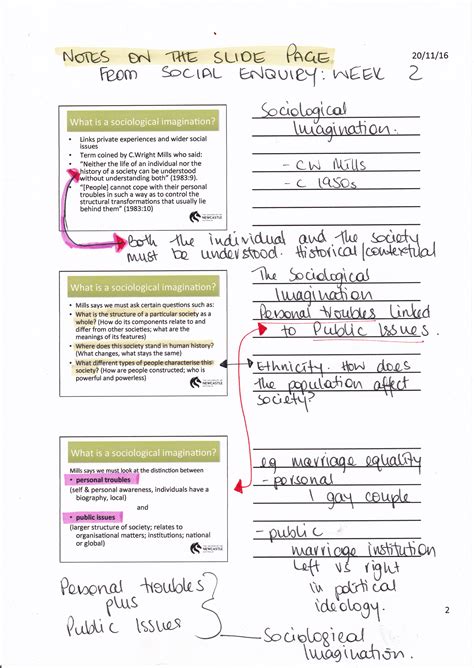 NOTES ON THE SLIDE PAGE
20/11/16
FROM SOCIAL ENQUIRY: WEEK 2
What is a sociological imagination?
• Links private experiences and wider social
issues
• Term coined by C.Wright Mills who said:
• "Neither the life of an individual nor the
history of a society can be understood
without understanding both" (1983:9).
• "[People] cannot cope with their personal
troubles in such a way as to control the
structural transformations that usually lie
behind them" (1983:10)
NEWCASTLE
Sociological
Imagination.
- CW Mills
- C 1950s
Both the individual and the society
must be understood. Historical/contextual
What is a sociological imagination?
• Mills says we must ask certain questions such as:
• What is the structure of a particular society as a
whole? (How do its components relate to and
differ from other societies; what are the
meanings of its features)
• Where does this society stand in human history?
(What changes, what stays the same)
• What different types of people characterise this
society? (How are people constructed; who is
powerful and powerless)
NEWCASTLE
The Sociological
Imagination
Personal troubles Linked
to Public Issues.
Ethnicity. How does
the population affect
society?
What is a sociological imagination?
Mills says we must look at the distinction between
• personal troubles
(self & personal awareness, individuals have a
biography, local)
and
• public issues
(larger structure of society; relates to
organisational matters; institutions; national
or global)
NEWCASTLE
eg marriage equality
- personal
1 gay couple
- public
marriage institution
Left vs right
in political
ideology.
Personal troubles
plus
Public Issues
Sociological
Imagination.
2